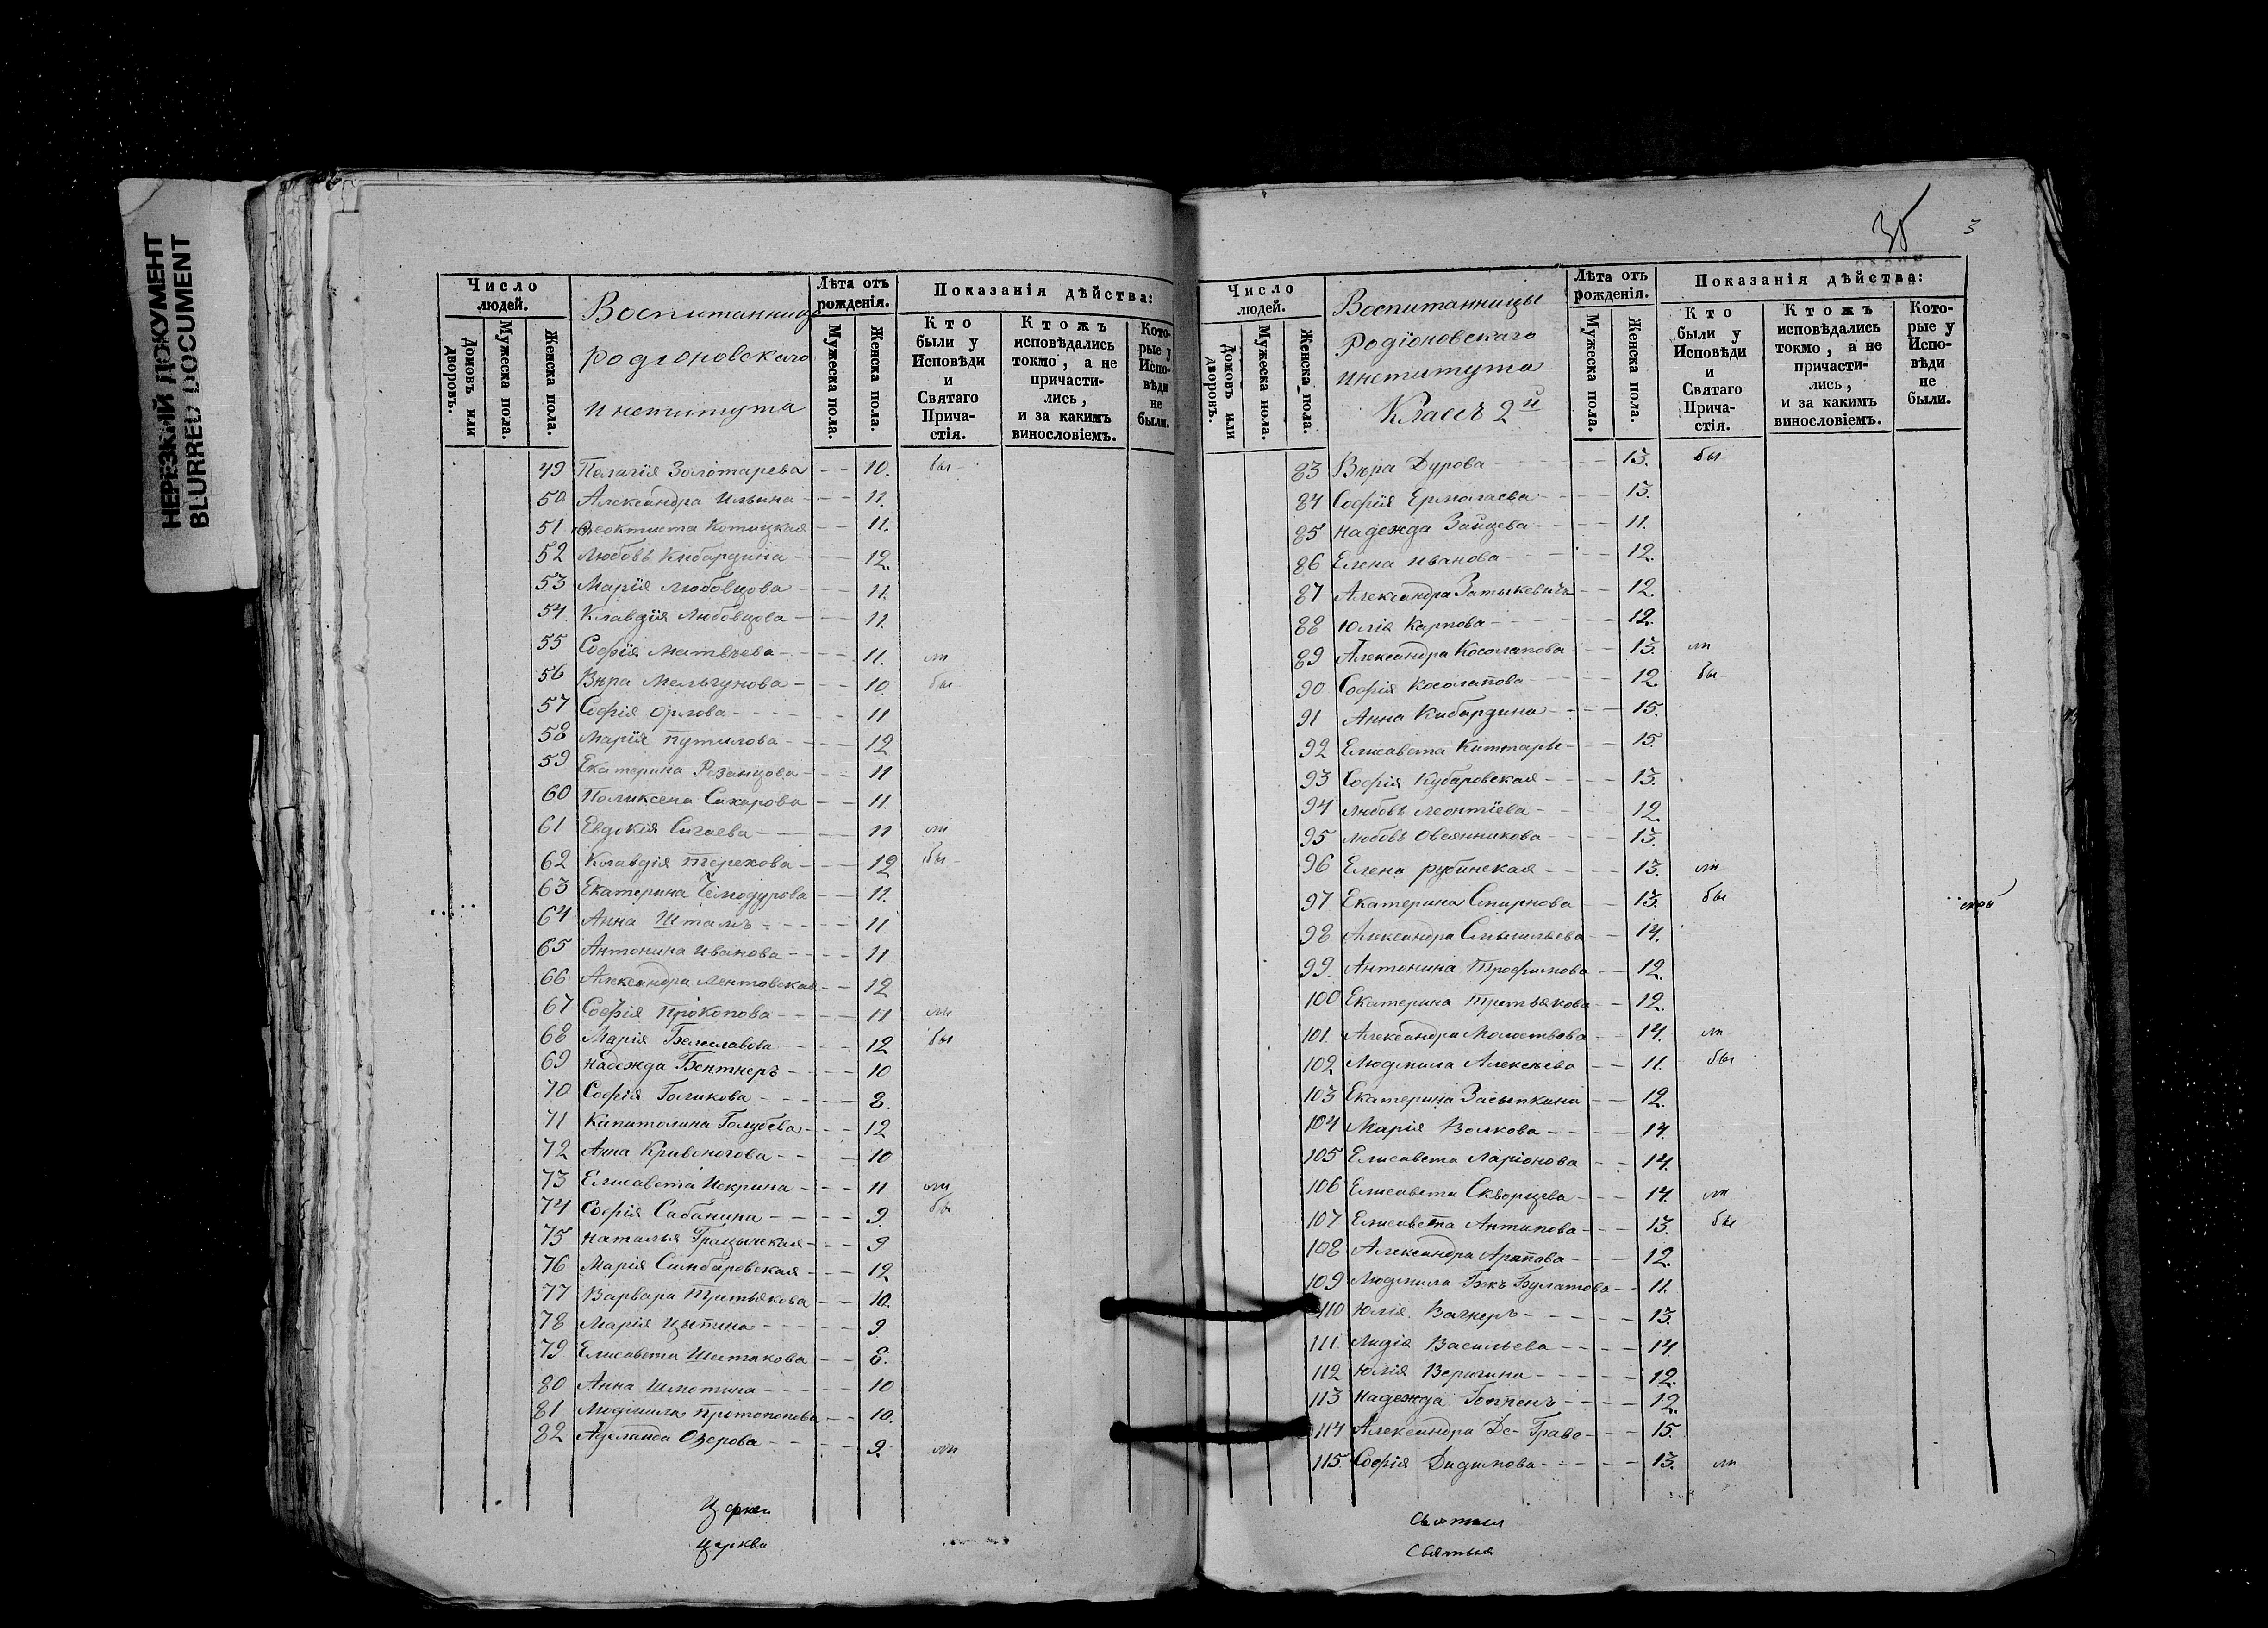 НЕРЕЗКИЙ ДОКУМЕНТ
BLURRED DOCUMENT
Число людей.
Домовъ или дворовъ.
Мужеска пола.
Женска пола.
Воспитанницы
Родіоновскаго
Института
Лѣта отъ рожденія.
Мужеска пола.
Женска пола.
Показанія дѣйства:
Кто были у Исповѣди и Святаго Причастія.
Ктожъ исповѣдались токмо, а не причастились, и за какимъ винословіемъ.
Которые у Исповѣди не были.
49 Пелагія Золотарева - - 10. бы
50 Александра Ильина - - 11.
51 Ѳеоктиста Котицкая - - 11.
52 Любовь Кибардина - - 12.
53 Марія Любовцова - - 11.
54 Клавдія Любовцова - - 11.
55 Софія Матвѣева - - 11. ли
56 Вѣра Мельгунова - - 10. бы
57 Софія Орлова - - 11
58 Марія Путилова - - 12
59 Екатерина Резанцова - - 11
60 Поликсена Сахарова - - 11.
61 Евдокія Сигаева - - 11 ли
62 Клавдія Терехова - - 12 бы
63 Екатерина Чемодурова - - 11.
64 Анна Штамъ - - 11.
65 Антонина Иванова - - 11
66 Александра Лентовская - - 12
67 Софія Прокопова - - 11 ли
68 Марія - - 12 бы
69 Надежда Бентнеръ - - 10
70 Софія Голикова - - 8.
71 Капитолина Голубева - - 12
72 Анна Кривоногова - - 10
73 Елисавета Искрина - - 11 ли
74 Софія Сабанина - - 9. бы
75 Наталья - - 9
76 Марія Симбаровская - - 12
77 Варвара Третьякова - - 10.
78 Марія Цытина - - 9
79 Елисавета Шестакова - - 8.
80 Анна - - 10
81 Людмила Протопопова - - 10.
82 Аделаида Озерова - - 9. ли
Церкви
Церкви
35
3
Число людей.
Домовъ или дворовъ.
Мужеска пола.
Женска пола.
Воспитанницы
Родіоновскаго
Института
Классъ 2й
Лѣта отъ рожденія.
Мужеска пола.
Женска пола.
Показанія дѣйства:
Кто были у Исповѣди и Святаго Причастія.
Ктожъ исповѣдались токмо, а не причастились, и за какимъ винословіемъ.
Которые у Исповѣди не были.
83 Вѣра Дурова - - 13. бы
84 Софія Ермолаева - - 13.
85 Надежда Зайцева - - 11.
86 Елена Иванова - - 12.
87 Александра Затыкевичъ - - 12.
88 Юлія Карпова - - 12.
89 Александра Косолапова - - 13. ли
90 Софія Косолапова - - 12 бы
91 Анна Кибардина - - 15.
92 Елисавета Киттары - - 15.
93 Софія Кубаровская - - 13.
94 Любовь Леонтіева - - 12.
95 Любовь Овсянникова - - 13.
96 Елена Рубинская - - 13. ли
97 Екатерина Смирнова - - 13. бы
98 Александра - - 14.
99. Антонина Трофимова - - 12.
100 Екатерина Третьякова - - 12.
101. Александра Молоствова - - 14. ли
102 Людмила Алексѣева - - 11. бы
103 Екатерина Засыпкина - - 12.
104 Марія Волкова - - 14.
105 Елисавета Ларіонова - - 14.
106 Елисавета Скворцева - - 14. ли
107 Елисавета Антипова - - 13. бы
108 Александра Арапова - - 12.
109 Людмила Бекъ Булатова - - 11.
110 Юлія Вагнеръ - - 13.
111. Лидія Васильева - - 14.
112 Юлія Веригина - - 12.
113 Надежда Гоппенъ - - 12.
114 Александра Де-Граве - - 15.
115. Софія Дидимова - - 13. ли
Святыя
Святыя